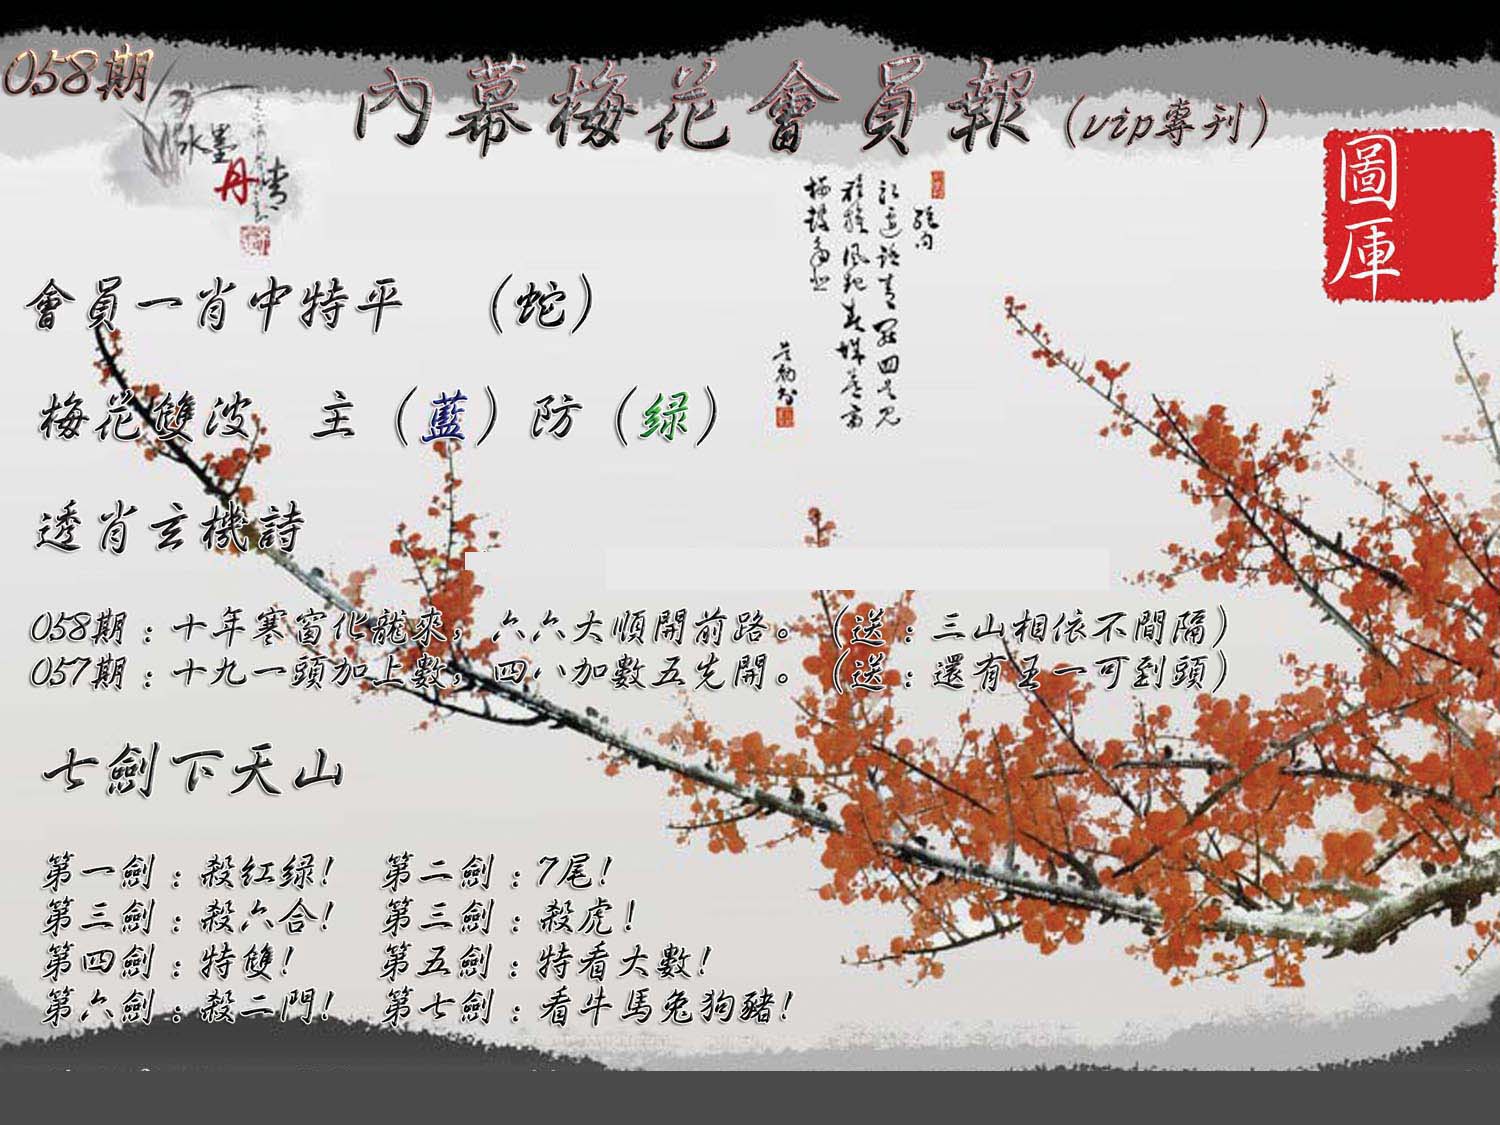 058期
內幕梅花會員報(vip專刊)
水墨
丹青
圖庫
會員一肖中特平 (蛇)
梅花雙波 主(藍)防(绿)
透肖玄機詩
058期:十年寒窗化龍來,六六大順開前路。(送:三山相依不間隔)
057期:十九一頭加上數,四八加數五先開。(送:還有五一可到頭)
七劍下天山
第一劍:殺紅绿! 第二劍:7尾!
第三劍:殺六合! 第三劍:殺虎!
第四劍:特雙! 第五劍:特看大數!
第六劍:殺二門! 第七劍:看牛馬兔狗豬!